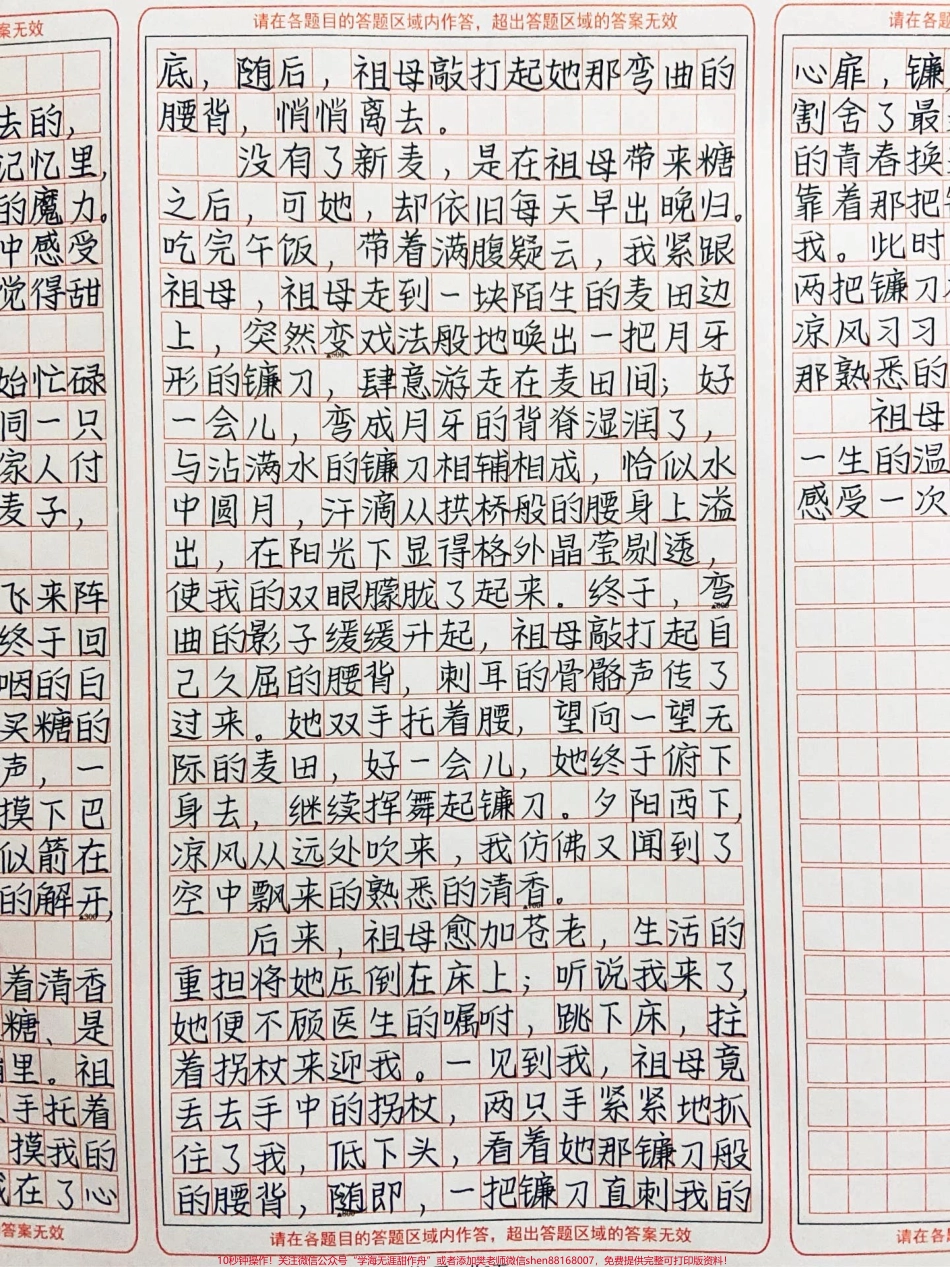 案无效
去的，
记忆里，
的魔力。
中感受
觉得甜
始忙碌
同一只
家人付
麦子，
飞来阵
终于回
咽的白
买糖的
声，一
摸下巴
似箭在
的解开，
着清香
糖、是
里。祖
手托着
摸我的
在了心
答案无效
请在各题目的答题区域内作答，超出答题区域的答案无效
底，随后，祖母敲打起她那弯曲的
腰背，悄悄离去。
没有了新麦，是在祖母带来糖
之后，可她，却依旧每天早出晚归。
吃完午饭，带着满腹疑云，我紧跟
祖母，祖母走到一块陌生的麦田边
上，突然变戏法般地唤出一把月牙
形的镰刀，肆意游走在麦田间；好
一会儿，弯成月牙的背脊湿润了，
与沾满水的镰刀相辅相成，恰似水
中圆月，汗滴从拱桥般的腰身上溢
出，在阳光下显得格外晶莹剔透，
使我的双眼朦胧了起来。终于，弯
曲的影子缓缓升起，祖母敲打起自
己久屈的腰背，刺耳的骨骼声传了
过来。她双手托着腰，望向一望无
际的麦田，好一会儿，她终于俯下
身去，继续挥舞起镰刀。夕阳西下，
凉风从远处吹来，我仿佛又闻到了
空中飘来的熟悉的清香。
后来，祖母愈加苍老，生活的
重担将她压倒在床上；听说我来了，
她便不顾医生的嘱咐，跳下床，拄
着拐杖来迎我。一见到我，祖母竟
丢去手中的拐杖，两只手紧紧地抓
住了我，低下头，看着她那镰刀般
的腰背，随即，一把镰刀直刺我的
请在各题目的答题区域内作答，超出答题区域的答案无效
请在各
心扉，镰
割舍了最
的青春换
靠着那把
我。此时
两把镰刀
凉风习习
那熟悉的
祖母
一生的温
感受一次
请在各
10秒钟操作！关注微信公众号“学海无涯甜作舟”或者添加樊老师微信shen88168007，免费提供完整可打印版资料！